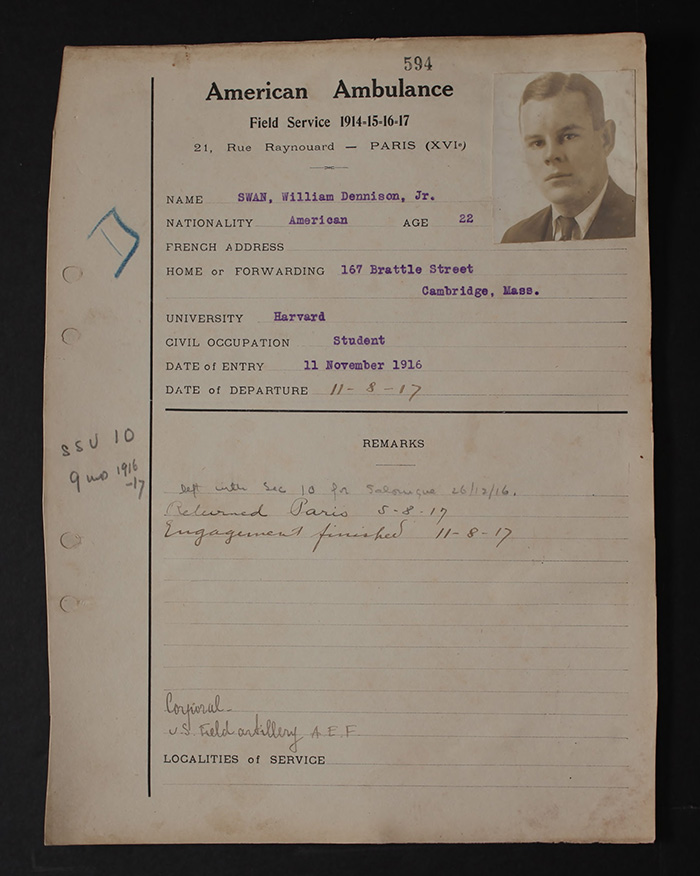 594
American Ambulance
Field Service 1914-15-16-17
21, Rue Raynouard — PARIS (XVIe)
NAME SWAN, William Dennison, Jr.
NATIONALITY American AGE 22
FRENCH ADDRESS
HOME or FORWARDING 167 Brattle Street
Cambridge, Mass.
UNIVERSITY Harvard
CIVIL OCCUPATION Student
DATE of ENTRY 11 November 1916
DATE of DEPARTURE 11-8-17
REMARKS
SSU 10
9 mo 1916
-17
left with Sec 10 for Salonique 26/12/16.
Returned Paris 5-8-17
Engagement finished 11-8-17
Corporal-
U.S. Field artillery A E F
LOCALITIES of SERVICE